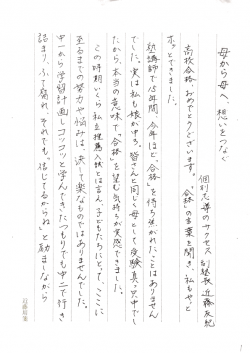 母から母へ、想いをつなぐ
個別志導のサクセス 副塾長 近藤友紀
高校合格おめでとうございます。「合格」の言葉を聞き、私もやっと
ホッとできました。
塾講師で15年間、今年ほど「合格」を待ち焦がれたことはありません
でした。実は私も娘が中3。皆さんと同じく母として受験真っ只中でし
たから、本当の意味で「合格」を望む気持ちが実感できました。
この時期いくら私立推薦入試とは言え、子どもたちにとって、ここに
至るまでの努力や悩みは、決して楽なものではありませんでした。
中一から学習計画しコツコツと学んできたつもりでも中二で行き
詰まり、ふて腐れ、それでも「信じてるからね」と励ましながら